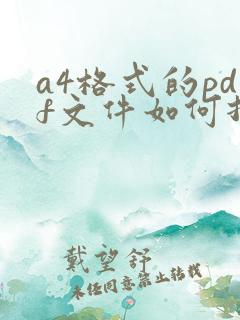 a4格式的pd
f文件如何
戴望舒
未经同意禁止转载